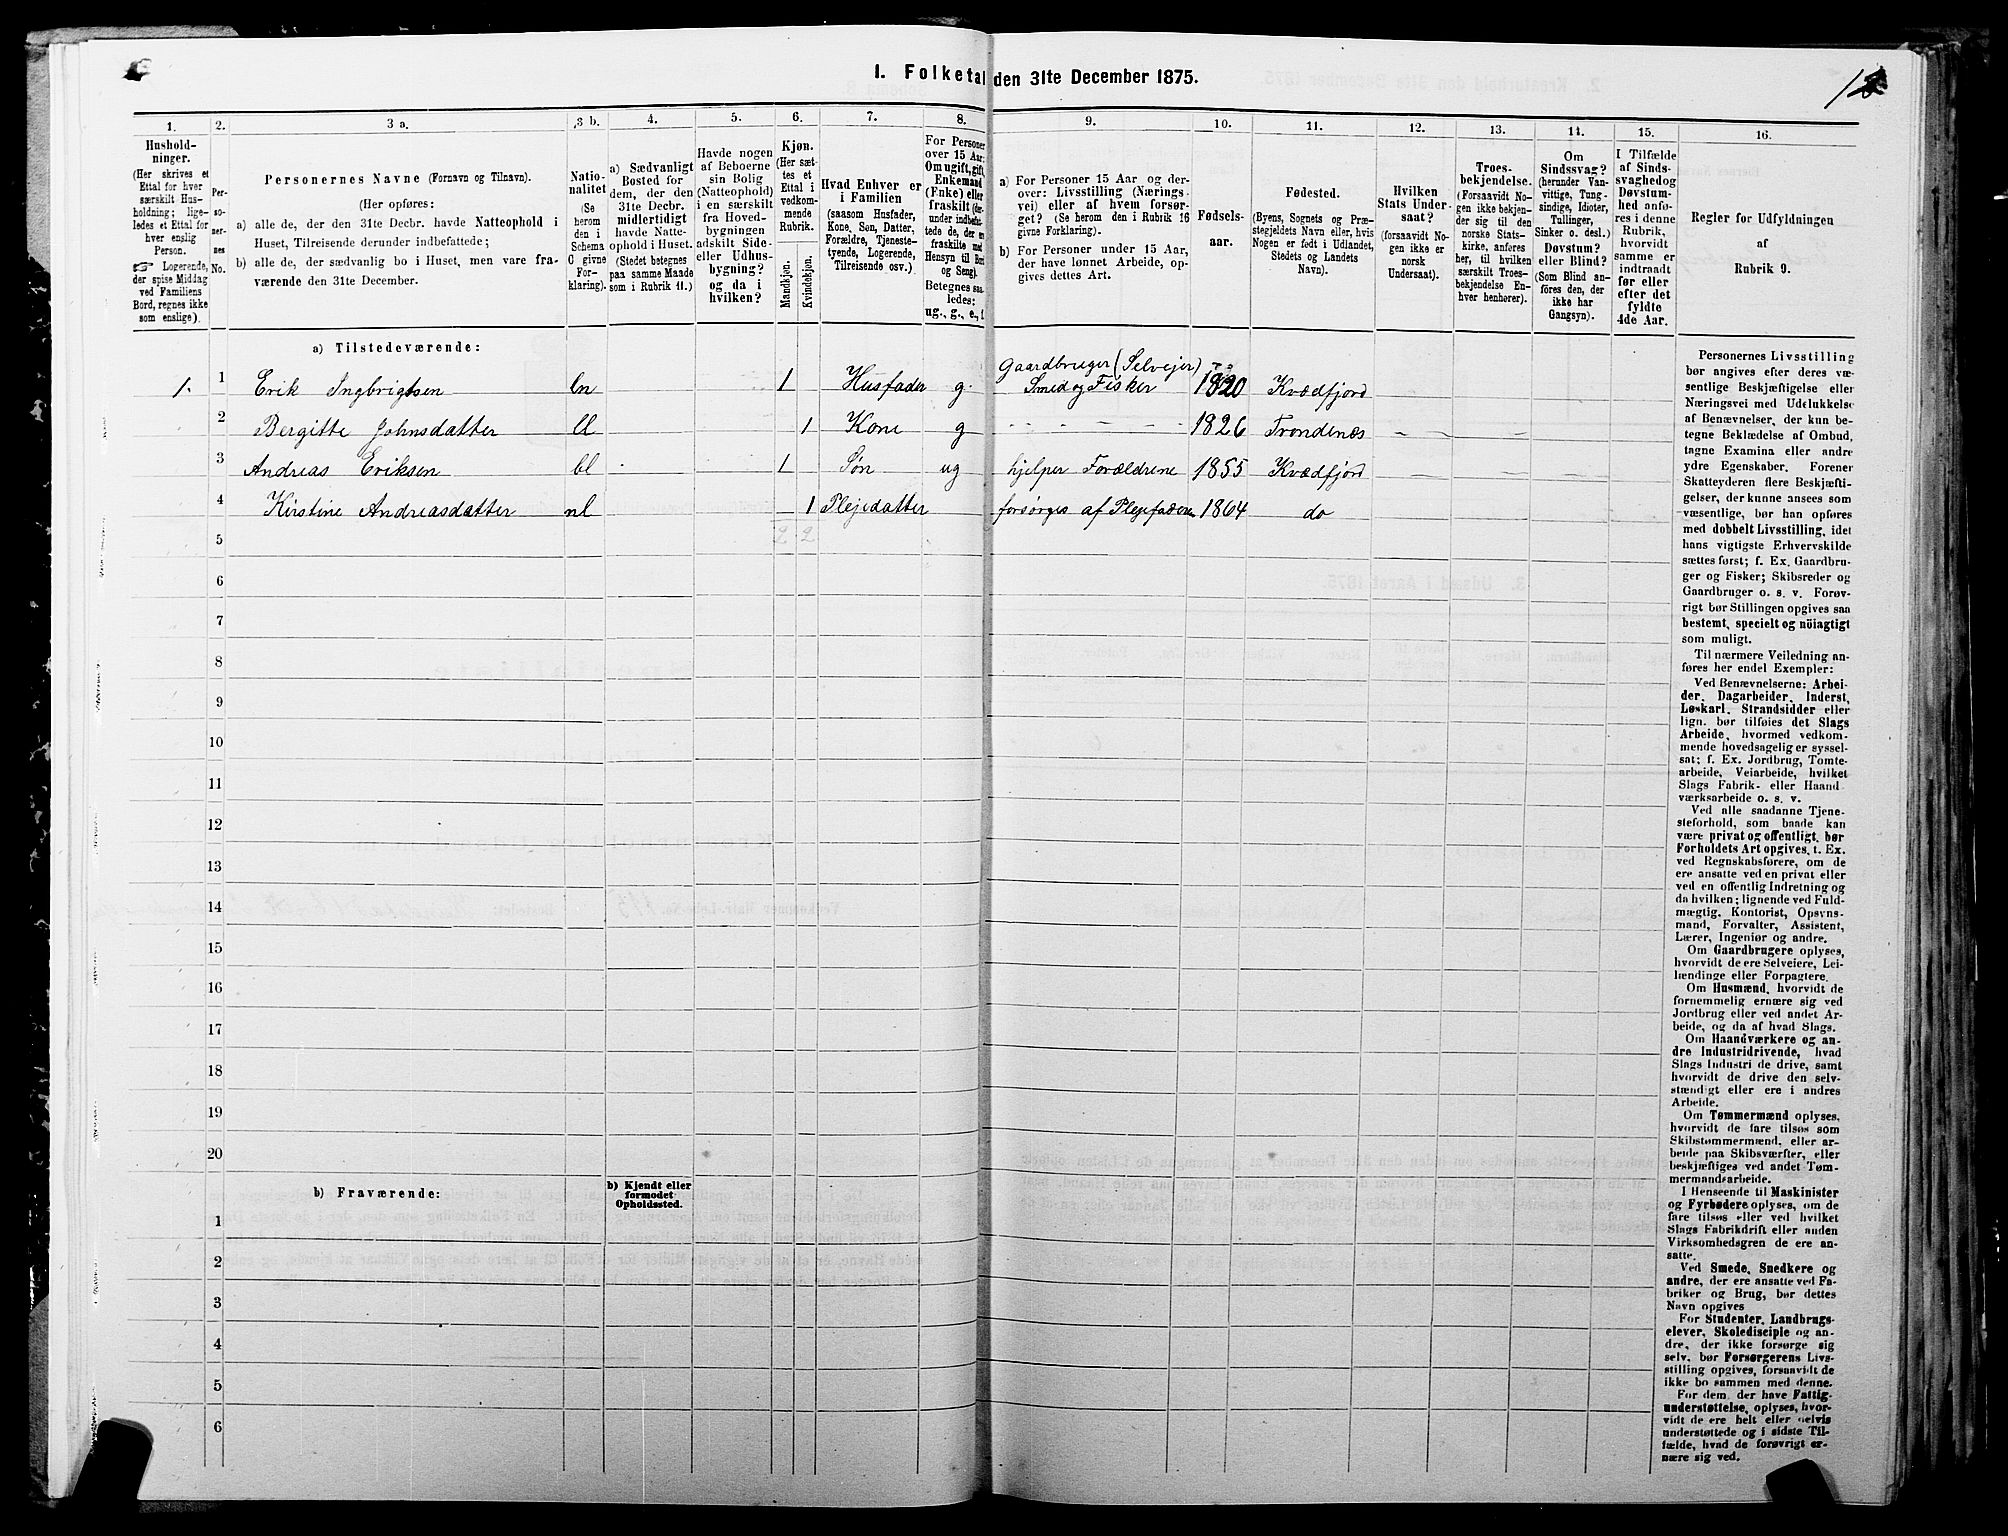 1. Folketal den 31te December 1875.
1.
2.
3 a.
3 b.
4.
5.
6.
7.
8.
9.
10.
11.
12.
13.
14.
15.
16.
Hushold-
ninger.
(Her skrives et
Ettal for hver
særskilt Hus-
holdning; lige-
ledes et Ettal for
hver enslig
Person.
☞ Logerende,
der spise Middag
ved Familiens
Bord, regnes ikke
som enslige).
Per-
so-
ner-
nes
No.
Personernes Navne (Fornavn og Tilnavn).
(Her opføres:
a) alle de, der den 31te Decbr. havde Natteophold i
Huset, Tilreisende derunder indbefattede;
b) alle de, der sædvanlig bo i Huset, men vare fra-
værende den 31te December.
Natio-
nalitet
(Se
herom
den i
Schema
C givne
For-
klaring).
a) Sædvanligt
Bosted for
dem, der den
31te Decbr.
midlertidigt
havde Natte-
ophold i Huset.
(Stedet betegnes
paa samme Maade
som i Rubrik 11.)
Havde nogen
af Beboerne
sin Bolig
(Natteophold)
i en særskilt
fra Hoved-
bygningen
adskilt Side-
eller Udhus-
bygning?
og da i
hvilken?
Kjøn.
(Her sæt-
tes et
Ettal i
vedkom-
mende
Rubrik.
Mandkjøn.
Kvindekjøn.
Hvad Enhver er
i Familien
(saasom Husfader,
Kone, Søn, Datter,
Forældre, Tjeneste-
tyende, Logerende,
Tilreisende osv.)
For Personer
over 15 Aar:
Om ugift, gift,
Enkemand
(Enke) eller
fraskilt
Betegnes saa-
ledes:
ug., g., e., f.
a) For Personer 15 Aar og der-
over: Livsstilling (Nærings-
vei) eller af hvem forsør-
get? (Se herom den i Rubrik 16
givne Forklaring).
b) For Personer under 15 Aar,
der have lønnet Arbeide, op-
gives dettes Art.
Fødsels-
aar.
Fødested.
(Byens, Sognets og Præ-
stegjeldets Navn eller, hvis
Nogen er født i Udlandet,
Stedets og Landets
Navn).
Hvilken
Stats Under-
saat?
(forsaavidt No-
gen ikke er
norsk
Undersaat).
Troes-
bekjendelse.
(Forsaavidt No-
gen ikke bekjen-
der sig til den
norske Stats-
kirke, anføres
her, til hvilken
særskilt Troes-
bekjendelse En-
hver henhører).
Om
Sindssvag?
(herunder Van-
vittige, Tung-
sindige, Idioter,
Tullinger,
Sinker o. desl.)
Døvstum?
eller Blind?
(Som Blind an-
føres den, der
ikke har
Gangsyn).
I Tilfælde
af Sinds-
svaghed og
Døvstum-
hed anfø-
res i denne
Rubrik,
hvorvidt
samme er
indtraadt
før eller
efter det
fyldte
4de Aar.
Regler for Udfyldningen
af
Rubrik 9.
a) Tilstedeværende:
1. 1 Erik Ingbrigtsen bn 1 Husfader g. Gaardbruger (Selvejer)
Smed og Fisker 1820 Kvædfjord
2 Bergitte Johnsdatter ll 1 Kone g 1826 Trondenæs
3 Andreas Eriksen bl 1 Søn ug hjelper Forældrene 1855 Kvædfjord
4 Kirstine Andreasdatter nl 1 Plejedatter forsørges af Plejefaderen 1864 do
5 2 2
6
7
8
9
10
11
12
13
14
15
16
17
18
19
20
b) Fraværende:
b) Kjendt eller
formodet
Opholdssted.
1
2
3
4
5
6
Personernes Livsstilling
bør angives efter deres væ-
sentlige Beskjæftigelse eller
Næringsvei med Udelukkelse
af Benævnelser, der kun be-
tegne Beklædelse af Ombud,
tagne Examina eller andre
ydre Egenskaber. Forener
Skatteyderen flere Beskjæfti-
gelser, der kunne ansees som
væsentlige, bør han opføres
med dobbelt Livsstilling, idet
hans vigtigste Erhvervskilde
sættes først; f. Ex. Gaardbru-
ger og Fisker; Skibsreder og
Gaardbruger o. s. v. Forøv-
rigt bør Stillingen opgives saa
bestemt, specielt og nöiagtigt
som muligt.
Til nærmere Veiledning an-
føres her endel Exempler:
Ved Benævnelserne: Arbei-
der, Dagarbeider, Inderst,
Løskarl, Strandsidder eller
lign. bør tilføies det Slags
Arbeide, hvormed vedkom-
mende hovedsagelig er syssel-
sat; f. Ex. Jordbrug, Tomte-
arbeide, Veiarbeide, hvilket
Slags Fabrik- eller Haand
værksarbeide o. s. v.
Ved alle saadanne Tjene-
steforhold, som baade kan
være privat og offentligt, bør
Forholdets Art opgives, t. Ex.
ved Regnskabsførere, om de
ere ansatte ved en privat eller
ved en offentlig Indretning og
da hvilken; lignende ved Fuld-
mægtig, Kontorist, Opsyns-
mand, Forvalter, Assistent,
Lærer, Ingeniør og andre.
Om Gaardbrugere oplyses,
hvorvidt de ere Selveiere, Lei-
lændinge eller Forpagtere.
Om Husmænd, hvorvidt de
fornemmelig ernære sig ved
Jordbrug eller ved andet Ar-
beide, og da af hvad Slags.
Om Haandværkere og an-
dre Industridrivende, hvad
Slags Industri de drive, samt
hvorvidt de drive den selv-
stændigt eller ere i andres
Arbeide.
Om Tømmermænd oplyses,
hvorvidt de fare tilsøs som
Skibstømmermænd, eller ar-
beide paa Skibsværfter, eller
beskjæftiges ved andet Tøm-
mermandsarbeide.
I Henseende til Maskinister
og Fyrbødere oplyses, om de
fare tilsøs eller ved hvilket
Slags Fabrikdrift eller anden
Virksomhedsgren de ere an-
satte.
Ved Smede, Snedkere og
andre, der ere ansatte ved Fa-
briker og Brug, bør dettes
Navn opgives
For Studenter, Landbrugs-
elever, Skoledisciple og an-
dre, der ikke forsørge sig
selv, bør Forsørgerens Livs-
stilling opgives, forsaavidt de
ikke bo sammen med denne.
For dem, der have Fattig-
understøttelse, oplyses, hvor-
vidt de ere helt eller delvis
understøttede og i sidste Til-
fælde, hvad de forøvrigt er-
nære sig ved.